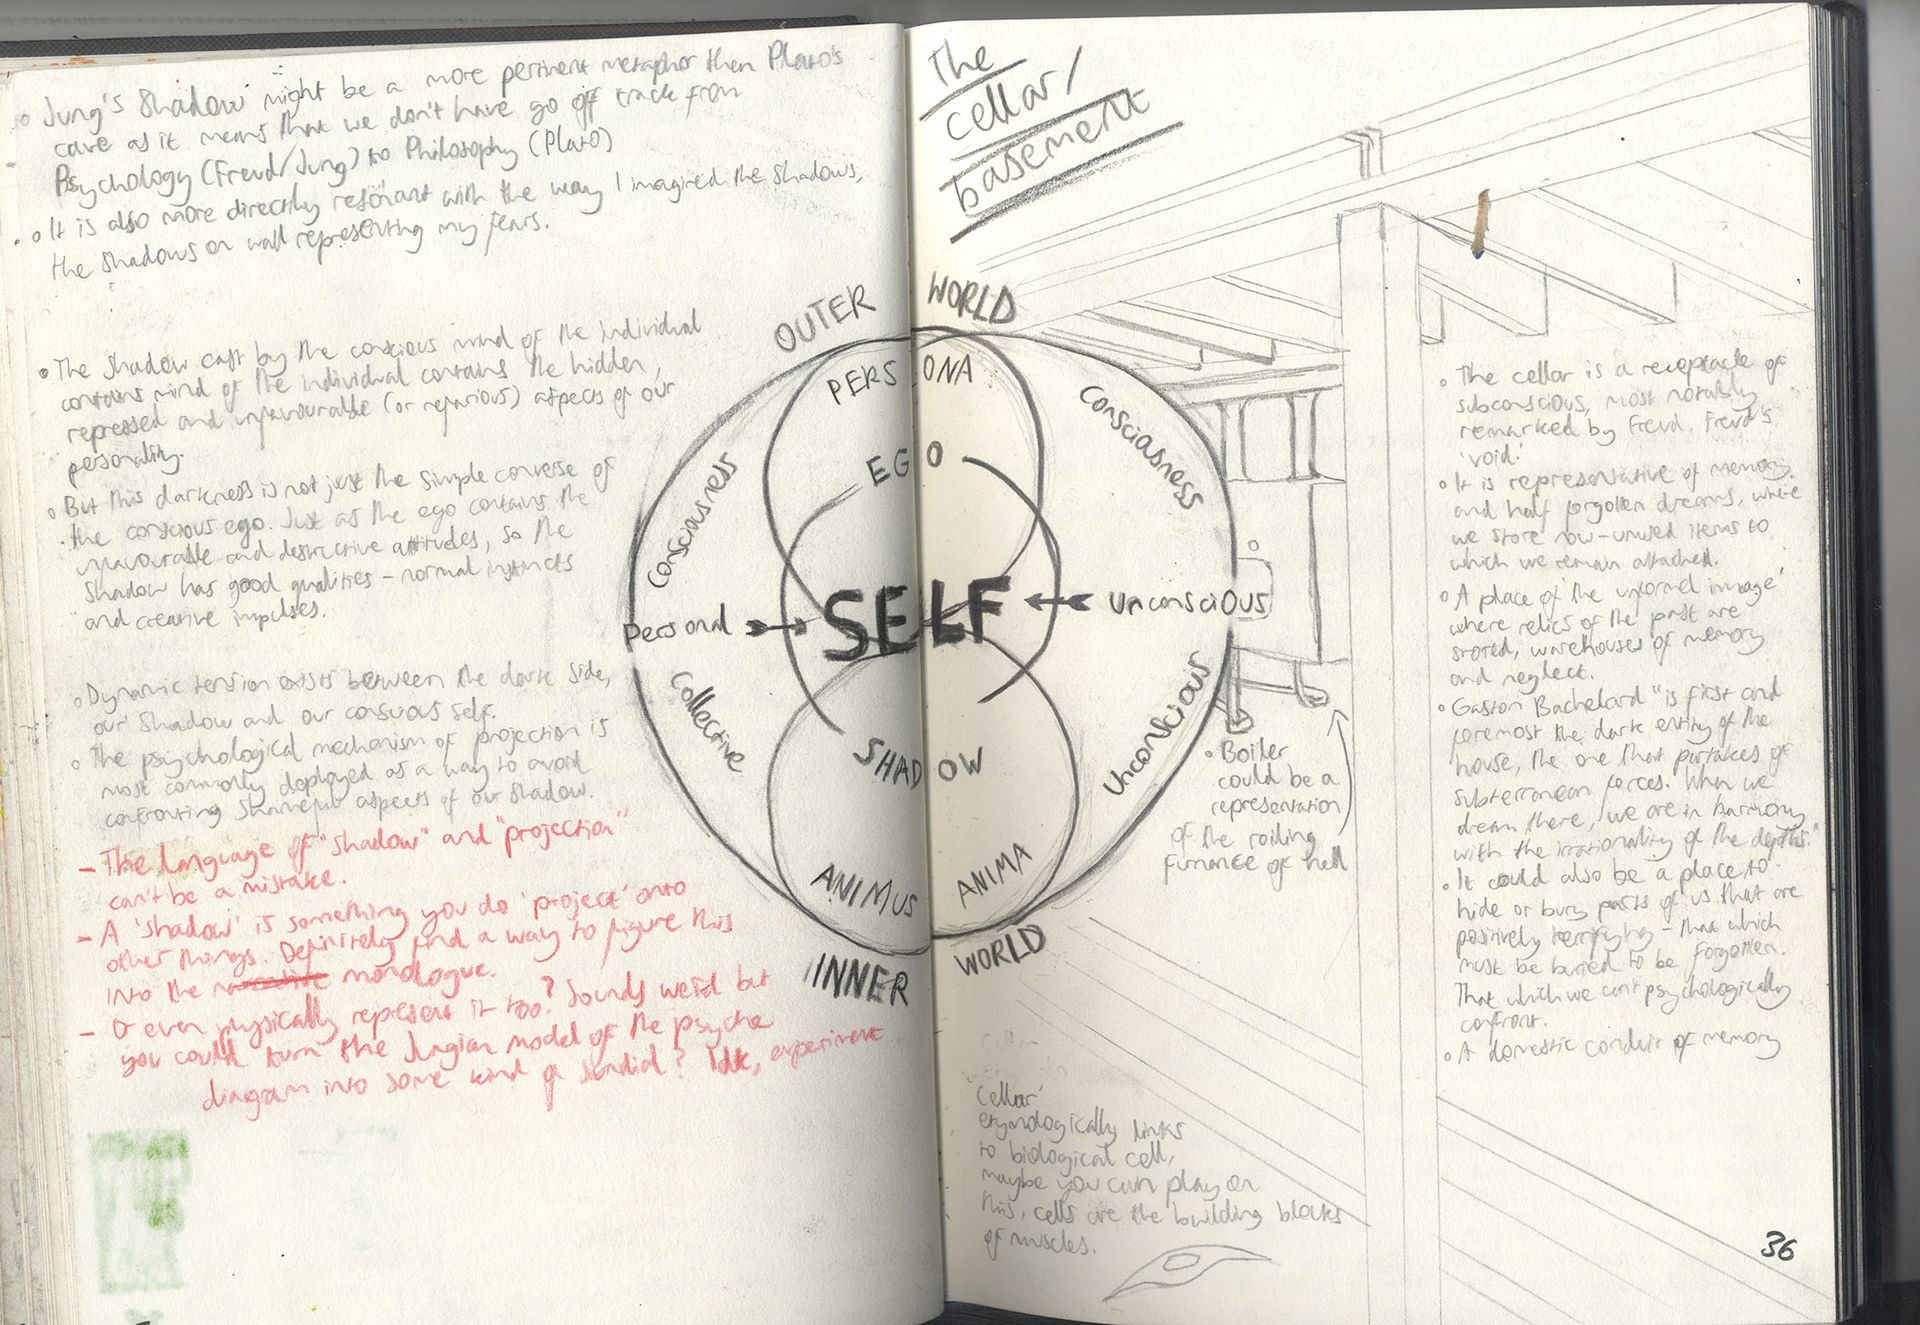 Jung's Shadow might be a more perinent metaphor then Plato's
cave as it means that we don't have go off track from
Psychology (Freud/Jung) to Philosophy (Plato)
It is also more directly resonant with the way I imagined the shadows,
the shadows on wall representing my fears.
The shadow cast by the conscious mind of the individual
contains mind of the individual contains the hidden,
repressed and unfavourable (or nefarious) aspects of our
personality.
But this darkness is not just the simple converse of
the conscious ego. Just as the ego contains the
unfavourable and destructive attitudes, so the
Shadow has good qualities - normal instincts
and creative impulses.
Dynamic tension exists between the dark side,
our shadow and our consuous self.
The psychological mechanism of projection is
most commonly deployed as a way to avoid
confronting shameful aspects of our shadow.
- The language of "shadow" and "projection"
can't be a mistake.
- A 'shadow' is something you do 'project' onto
other things. Definitely find a way to figure this
into the monologue.
- Or even physically represent it too? Sounds weird but
you could turn the Jungian model of the psyche
diagram into some kind of sundial? Idk, experiment
The
cellar/
basement
OUTER WORLD
PERSONA
EGO
Consciousness
Consciousness
SELF
Personal
Unconscious
Collective
Unconscious
SHADOW
ANIMUS
ANIMA
INNER WORLD
Boiler
could be a
representation
of the roiling
furnance of hell
The cellar is a receptacle of
subconscious, most notably
remarked by Freud. Freud's
'void.'
It is representative of memory
and half forgotten dreams, where
we store now-unused items to
which we remain attached.
A place of 'the unformed image'
where relics of the past are
stored, warehouses of memory
and neglect.
Gaston Bachelard "is first and
foremost the dark entity of the
house, the one that partakes of
subterranean forces. When we
dream there, we are in harmony
with the irrationality of the depths."
It could also be a place to
hide or bury parts of us that are
positively terrifying - that which
must be buried to be forgotten.
That which we can't psychologically
confront.
A domestic conduit of memory
'Cellar'
etymologically links
to biological cell,
maybe you can play on
this, cells are the building blocks
of muscles.
36